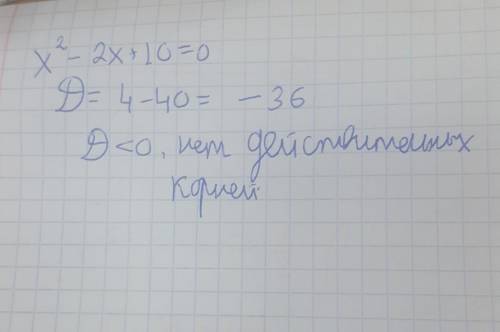 x² - 2x + 10 = 0
D = 4 - 40 = - 36
D < 0, нет действительных
корней